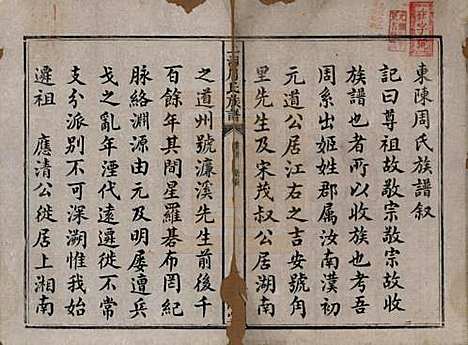 東陳周氏族譜叙
記曰尊祖故敬宗敬宗故收
族譜也者所以收族也者吾
周系出姬姓郡属汝南漢初
元道公居江右之吉安號角
里先生及宋茂叔公居湖南
周氏族譜
之道州號濂溪先生前後千
百餘年其間星羅碁布罔紀
脉絡淵源由元及明屢遭兵
戈之亂年湮代遠遷徙不常
支分派别不可深溯惟我始
遷祖 應清公徙居上湘南